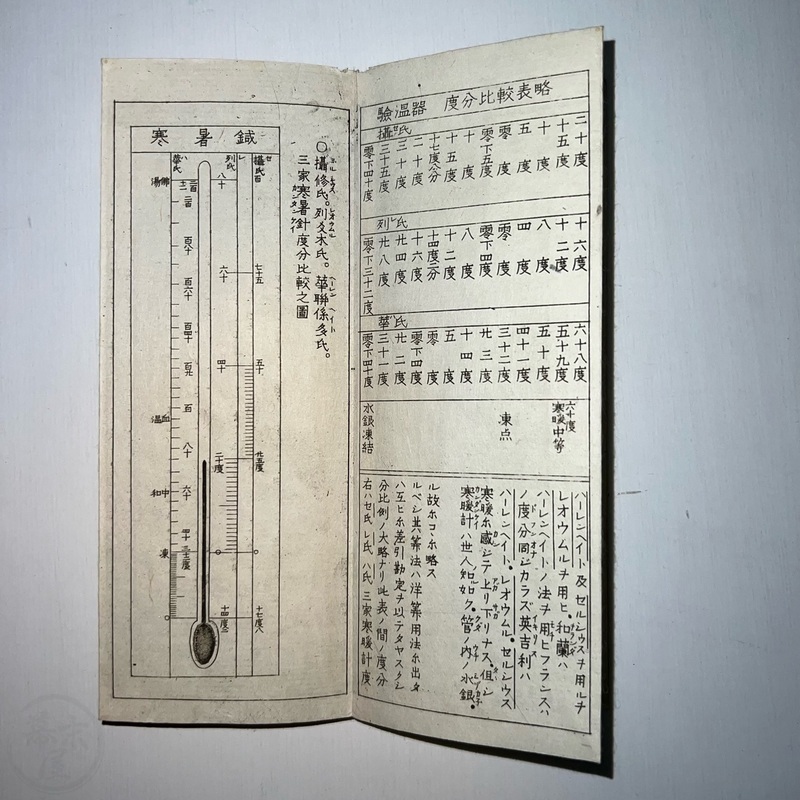 寒暑鍼
攝氏百
列氏
華氏
沸湯
二百十二
二百
百八十
百六十
百四十
百廿
百
血温
八十
中和
六十
四十
三十二度
凍
八十
六十
四十
二十度
十四度二
七十五
五十
廿五度
十七度八
〇攝修氏。列氏。華聯係多氏。
三家寒暑針度分比較之圖
験温器 度分比較表略
攝氏
零下四十度
三十五度
三十度
二十度
十七度八分
十五度
十度
零下五度
零度
五度
十度
十五度
二十度
列氏
零下三十二度
廿八度
廿四度
十六度
十四度二分
十二度
八度
零下四度
零度
四度
八度
十二度
十六度
華氏
零下四十度
三十一度
廿二度
零下四度
零度
五度
十四度
廿三度
三十二度
四十一度
五十度
五十九度
六十八度
水銀凍結
凍点
六十度
寒暖中等
右ハセ氏レ氏ハ氏三家寒暖計度
分比例ノ大略ナリ此表ノ間ノ度分
ハ互ヒニ差引勘定ヲ以テタヤスクシ
ルベシ其算法ハ洋算用法ニ出タ
ル故ニコヽニ略ス
寒暖計ハ世人知如ク。管ノ内ノ水銀。
寒暖ニ感シテ上リ下リナス。但シ
ハーレンヘイト。レオウムル。セルシウス
ノ度分同シカラズ英吉利ハ
ハーレンヘイトノ法ヲ用ヒフランスハ
レオウムルヲ用ヒ。和蘭ハ
ハーレンヘイト及セルシウスヲ用ルナ